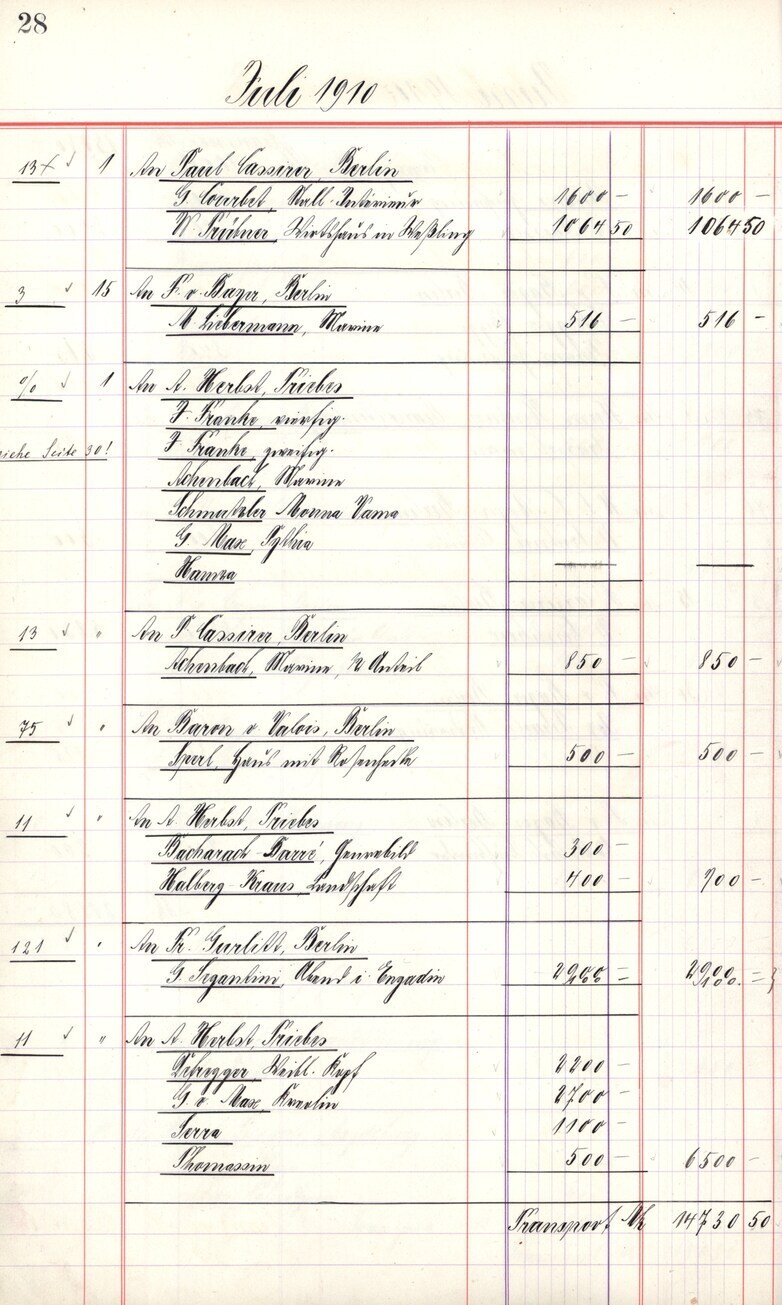 28
Juli 1910
13 x 1 An Paul Cassirer, Berlin
G. Courbet, Stall-Intérieur 1600 — 1600 —
W. Trübner, Wirtshaus in Weßling 1064 50 1064 50
3 15 An F. v. Bayer, Berlin
M Liebermann, Marine 516 — 516 —
% 1 An A. Herbst, Triebes
F. Franke, vierfig.
siehe Seite 30!
F Franke, zweifig.
Achenbach, Marine
Schmutzler Monna Vanna
G. Max, Pythia
Hamza — —
13 " An P Cassirer, Berlin
Achenbach, Marine, ½ Anteil 850 — 850 —
75 " An Baron v Valois, Berlin
Sperl, Haus mit Rosenhecke 500 — 500 —
11 " An A. Herbst, Triebes
Bacharach-Barré, Genrebild 300 —
Halberg-Kraus, Landschaft 400 — 700 —
121 " An Fr. Gurlitt, Berlin
G. Segantini, Abend i. Engadin
11 " An A. Herbst, Triebes
Defregger, Weibl. Kopf 2200 —
G. v. Max, 2700 —
Serra 1100 —
Thomassin 500 — 6500 —
Transport Mk 14730 50